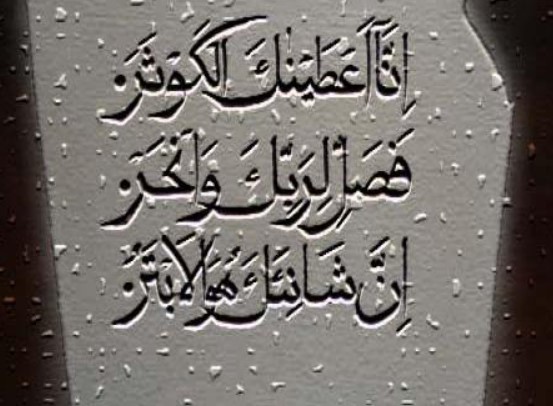 اِنَّآ اَعطَیْنٰكَ الْكَوْثَرَ
فَصَلِّ لِرَبِّكَ وَانْحَرْ
اِنَّ شَانِئَكَ هُوَالْاَبْتَرُ